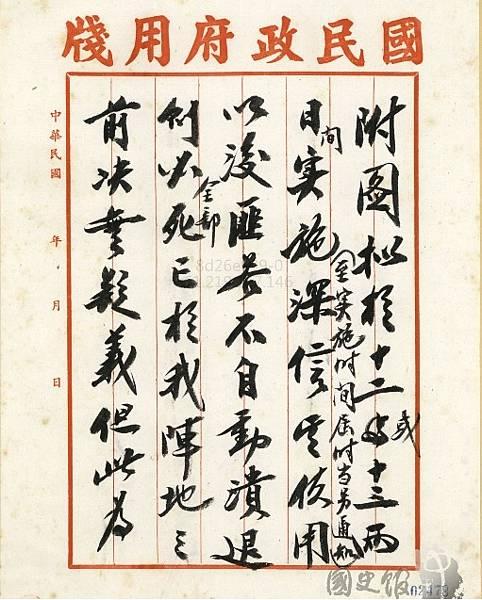 國民政府用牋
附图拟於十二或十三兩
至实施时间届时当另通知
日間实施深信其使用
以後匪若不自動潰退
则必全部死亡於我陣地之
前决無疑義但此為
中華民國 年 月 日
國史館